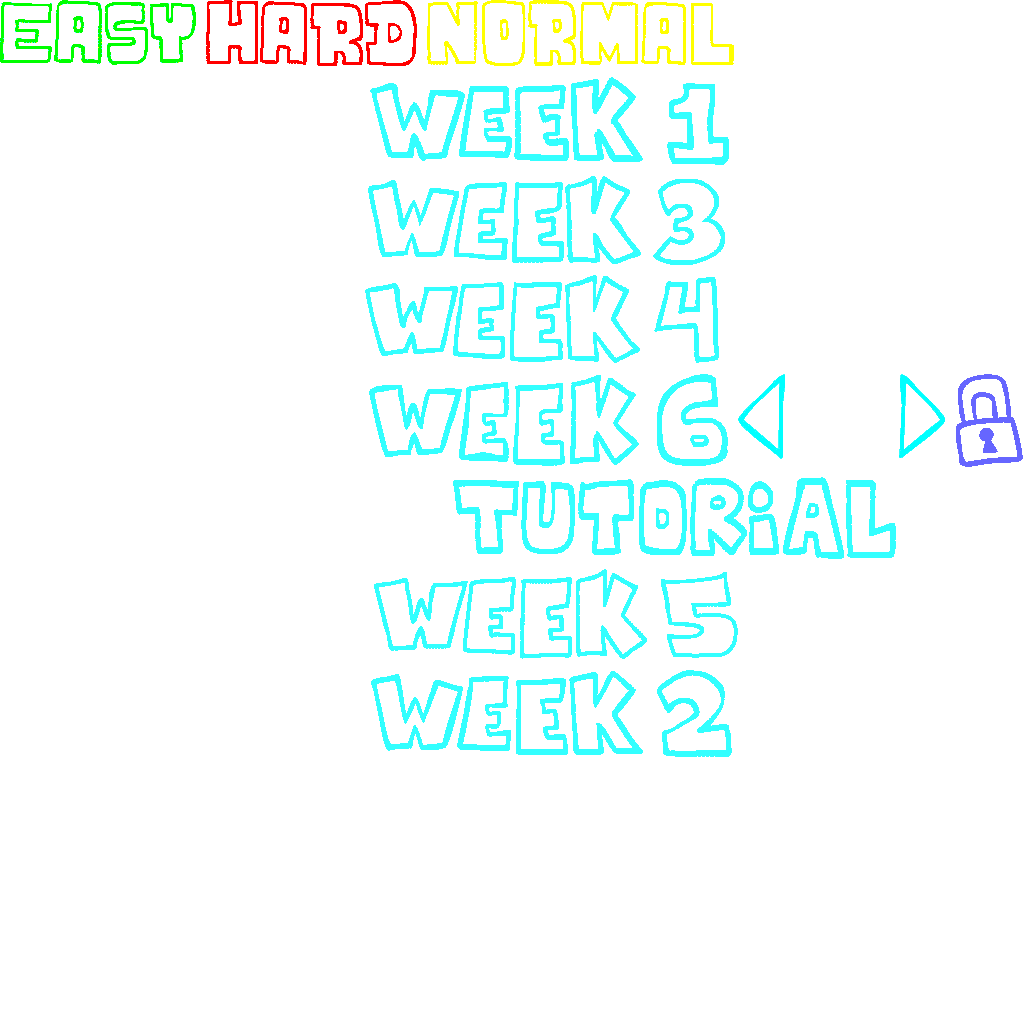 EASY HARD NORMAL
WEEK 1
WEEK 3
WEEK 4
WEEK 6
TUTORiAL
WEEK 5
WEEK 2